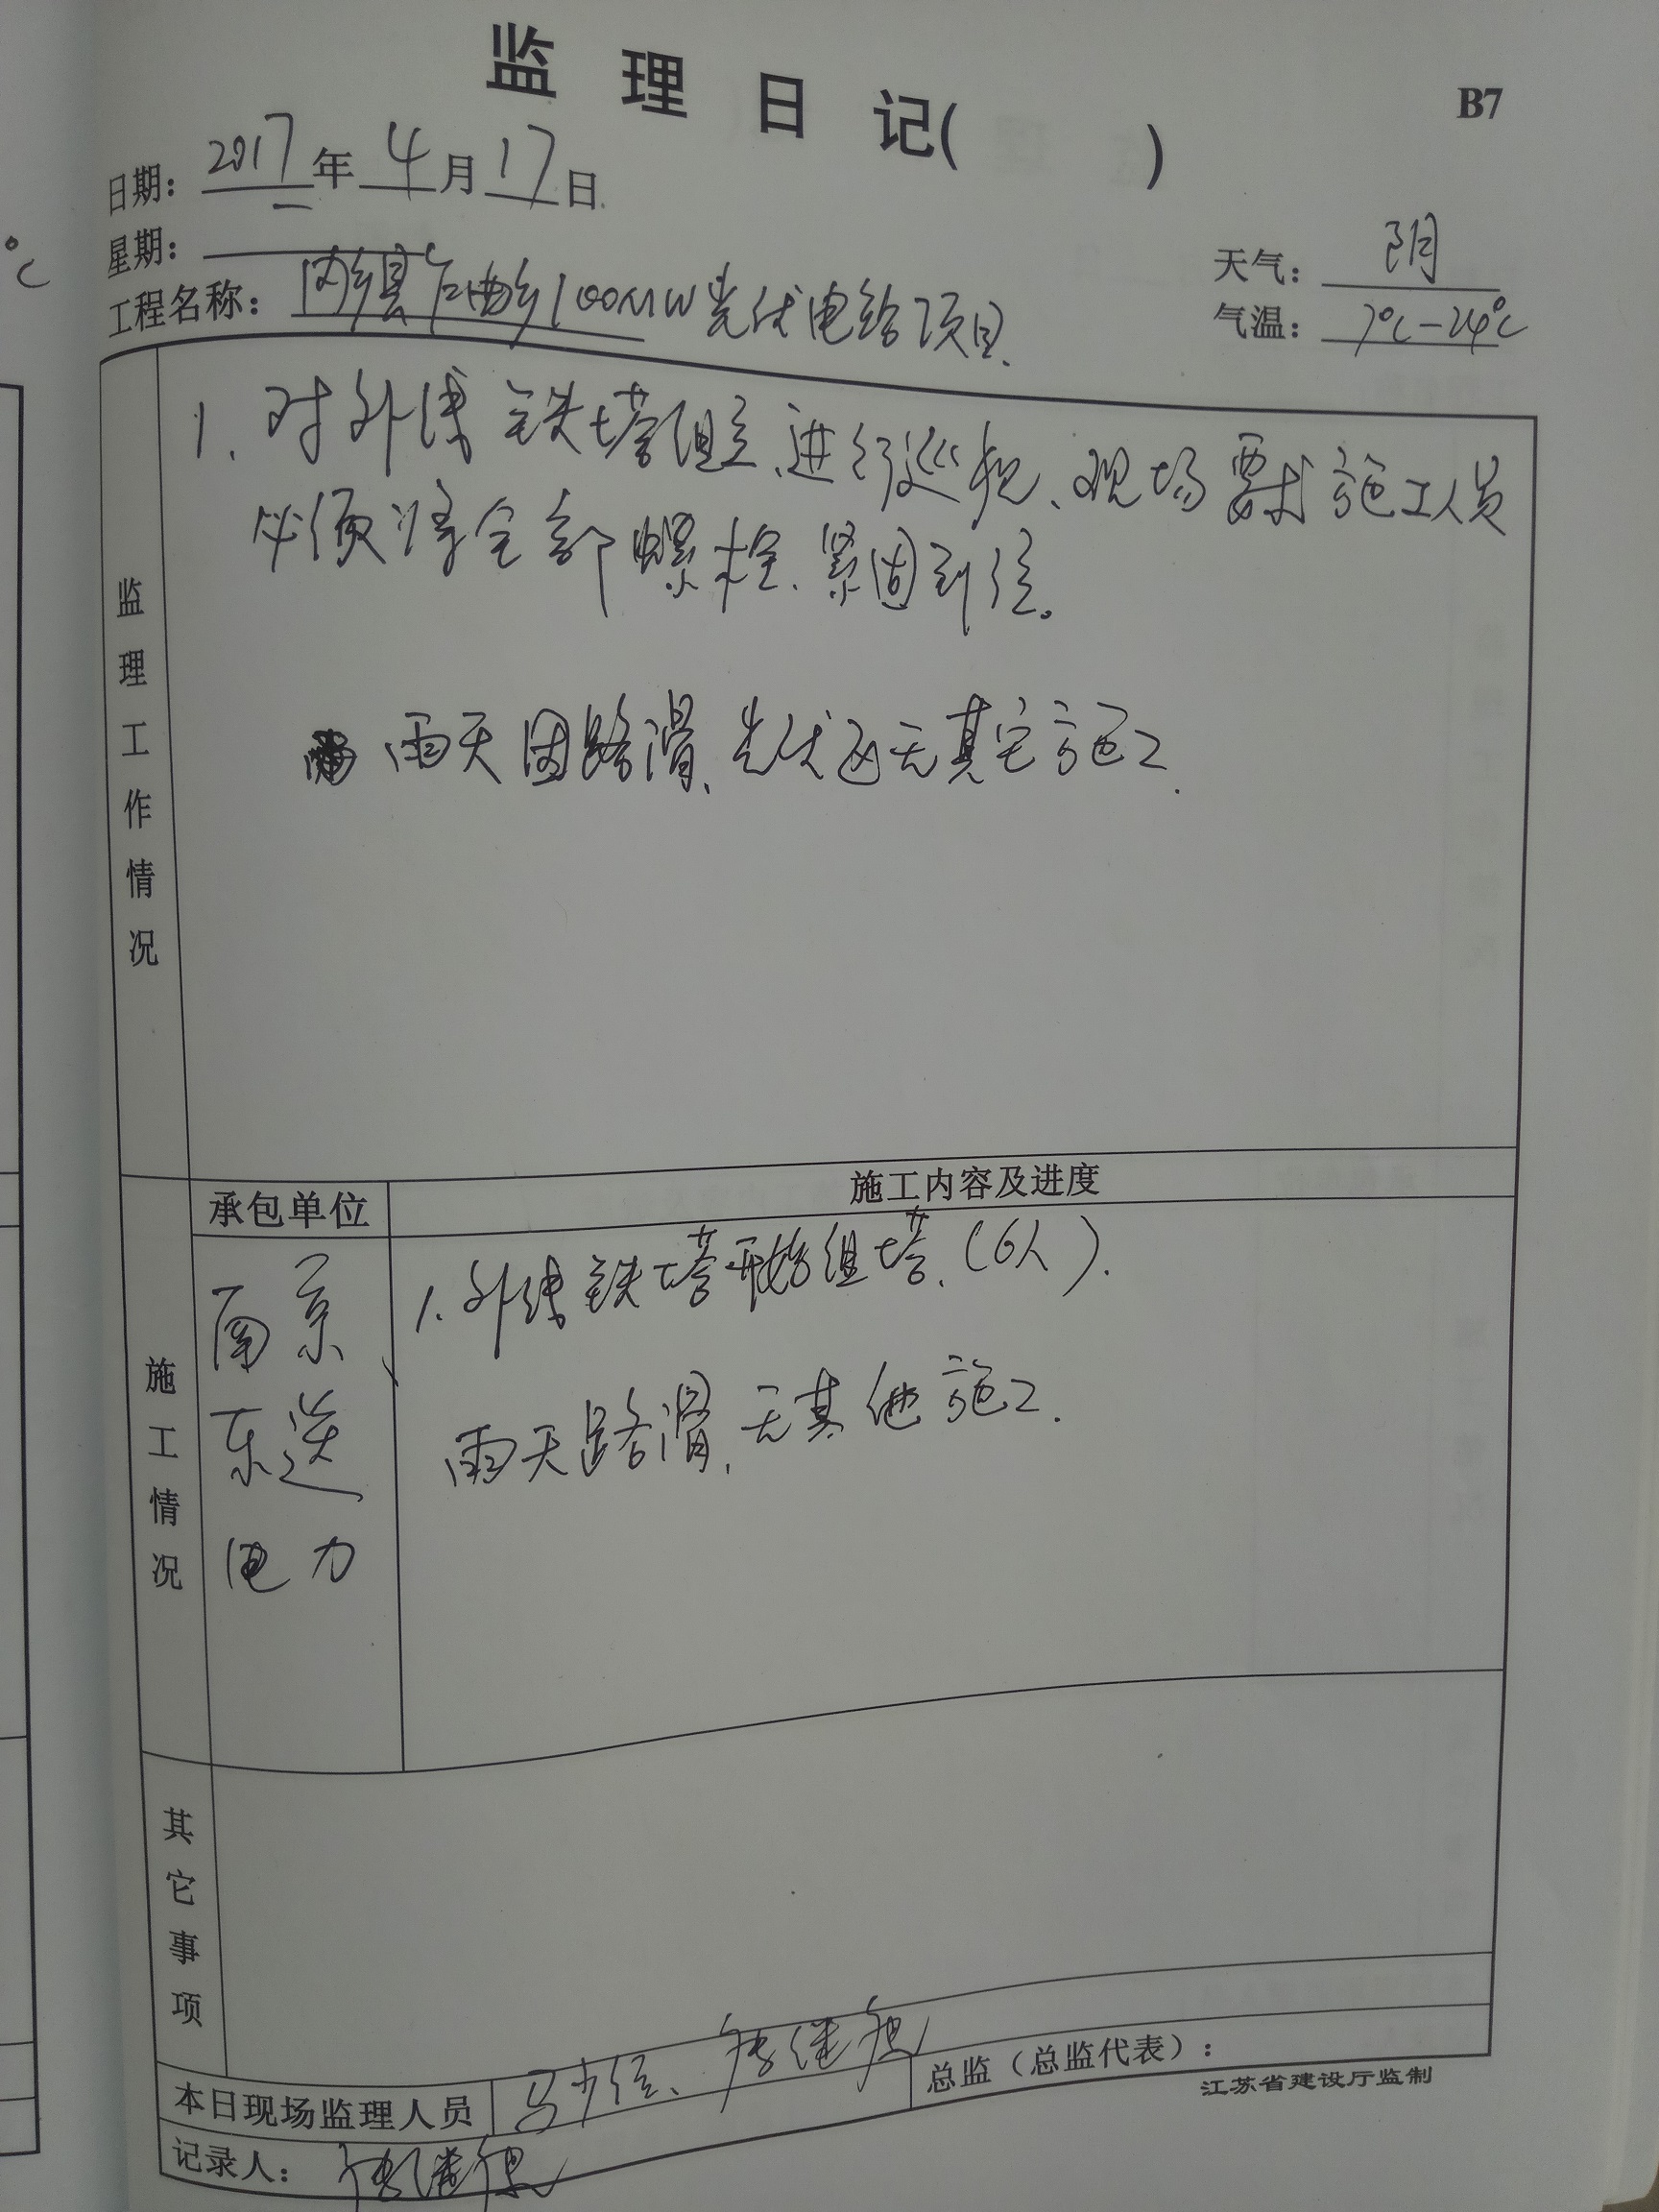 监理日记( )
B7
日期：2017年4月17日
星期：一
天气：阴
工程名称：内乡县乍曲乡100MW光伏电给项目.
气温：7℃-24℃
监理工作情况
1. 对外线铁塔组立、进行巡视、现场要求施工人员
必须将全部螺栓、紧固到位。
雨天因路滑、光伏区无其它施工.
施工情况
承包单位
施工内容及进度
南京
东送
电力
1. 外线铁塔开始组塔.(6人).
雨天路滑,无其他施工.
其它事项
本日现场监理人员
总监（总监代表）：
记录人：
江苏省建设厅监制
℃